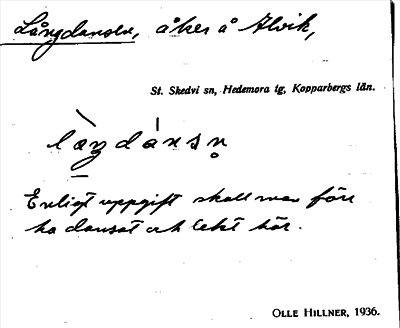 Långdansen, åker å Alvik,
St. Skedvi sn, Hedemora tg, Kopparbergs län.
Enligt uppgift skall man förr
ha dansat och lekt här.
OLLE HILLNER, 1936.